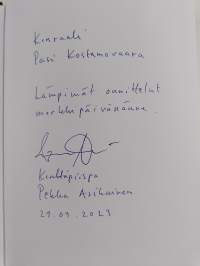 Kenraali
Pasi Kostamovaara
Lämpimät onnittelut
merkkipäivänänne
Kenttäpiispa
Pekka Asikainen
29.09.2023